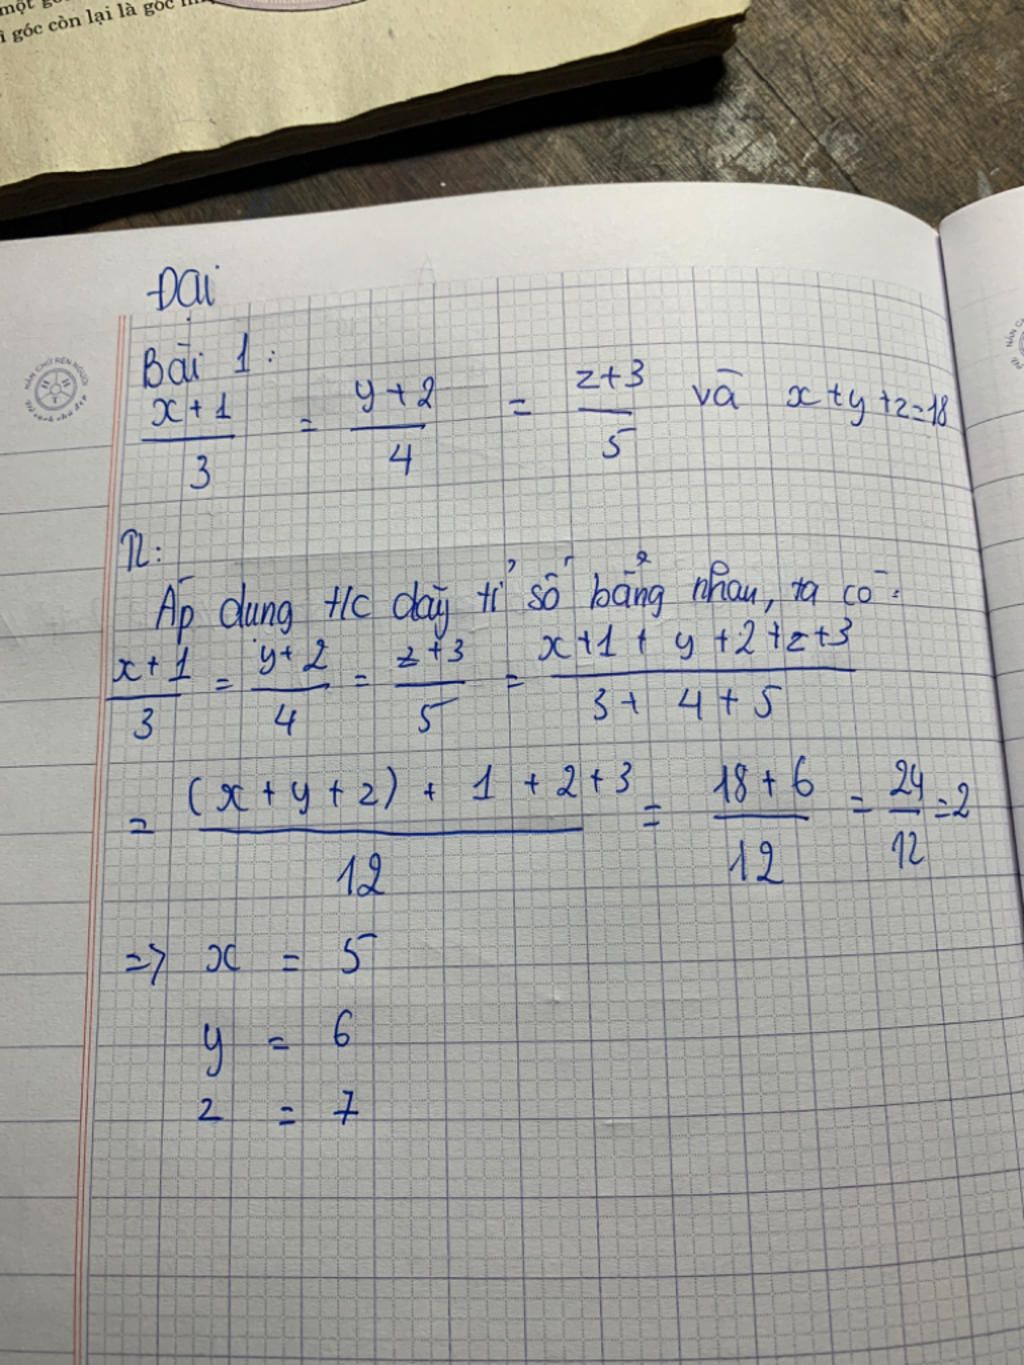 một
ì góc còn lại là góc
NẮN CHỮ RÈN NGƯỜI
Vở sạch chữ đẹp
Đại
Bài 1:
x+1/3 = y+2/4 = z+3/5 và x+y+z=18
Áp dụng t/c dãy tỉ số bằng nhau, ta có:
x+1/3 = y+2/4 = z+3/5 = x+1+y+2+z+3/3+4+5
= (x+y+z)+1+2+3/12 = 18+6/12 = 24/12 =2
=> x = 5
y = 6
z = 7